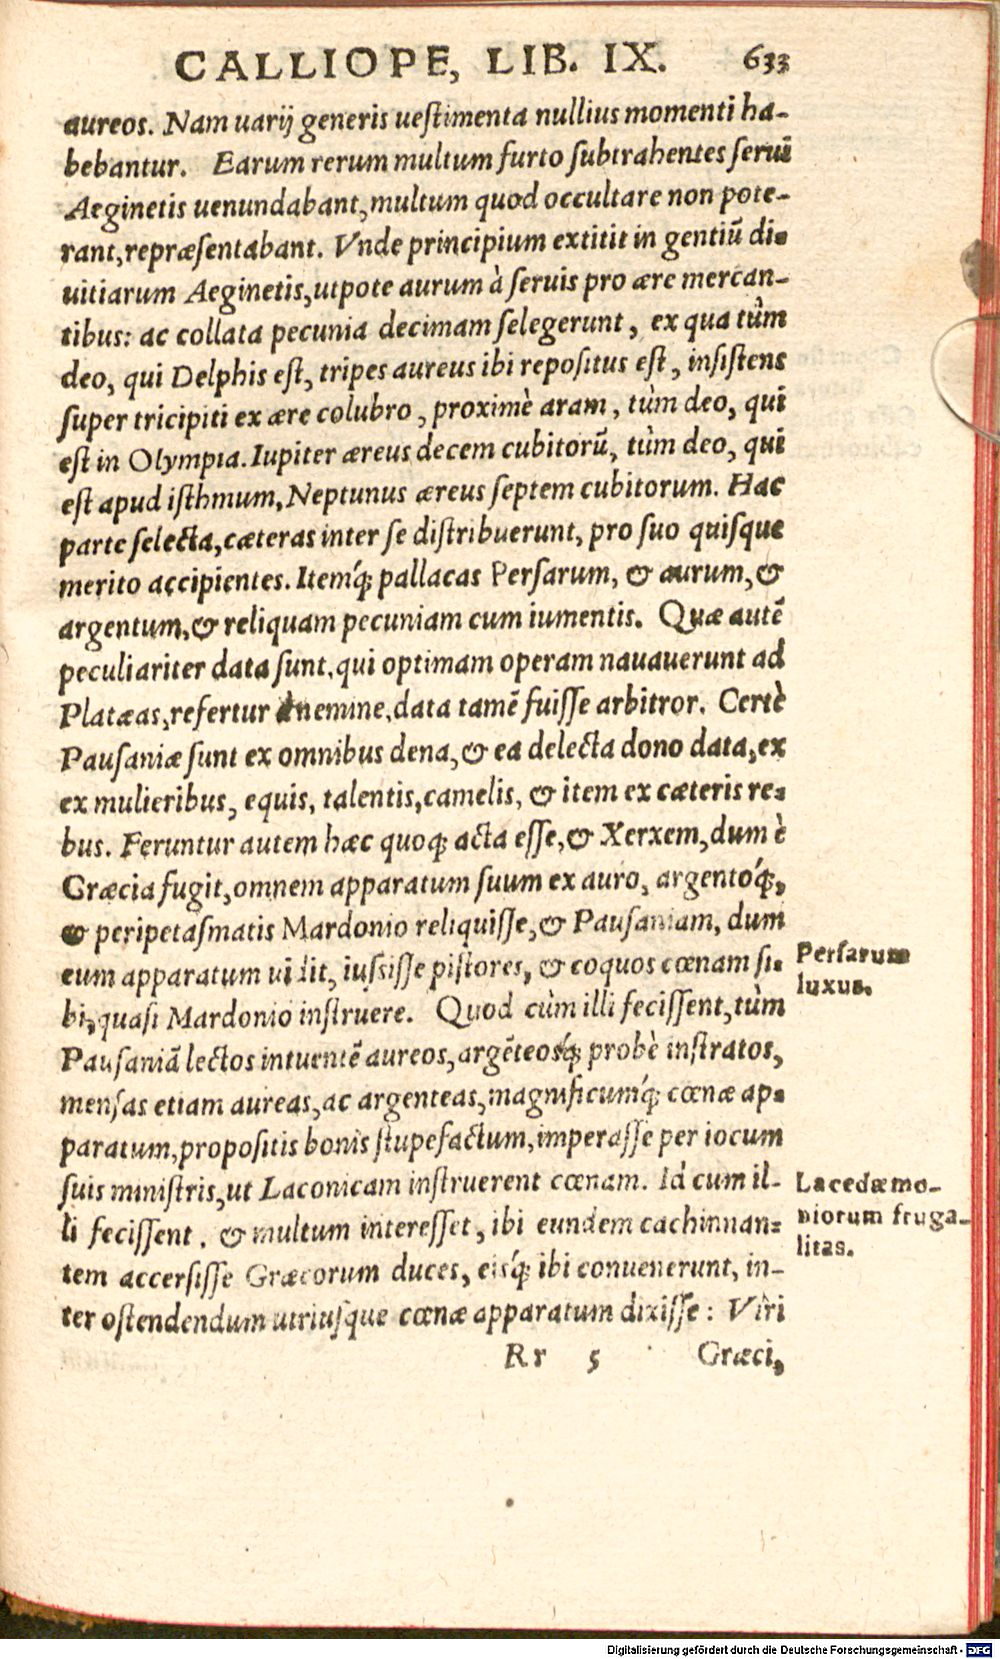 CALLIOPE, LIB. IX. 633
aureos. Nam uarij generis uestimenta nullius momenti ha-
bebantur. Earum rerum multum furto subtrahentes seruĩ
Aeginetis uenundabant, multum quod occultare non pote-
rant, repræsentabant. Vnde principium extitit in gentiũ di-
uitiarum Aeginetis, utpote aurum à seruis pro ære mercan-
tibus: ac collata pecunia decimam selegerunt, ex qua tùm
deo, qui Delphis est, tripes aureus ibi repositus est, insistens
super tricipiti ex ære colubro, proximè aram, tùm deo, qui
est in Olympia. Iupiter æreus decem cubitorũ, tùm deo, qui
est apud isthmum, Neptunus æreus septem cubitorum. Hac
parte selecta, cæteras inter se distribuerunt, pro suo quisque
merito accipientes. Itemq́; pallacas Persarum, & aurum, &
argentum, & reliquam pecuniam cum iumentis. Quæ autẽ
peculiariter data sunt, qui optimam operam nauauerunt ad
Platæas, refertur à nemine, data tamẽ fuisse arbitror. Certè
Pausaniæ sunt ex omnibus dena, & ea delecta dono data, ex
ex mulieribus, equis, talentis, camelis, & item ex cæteris re-
bus. Feruntur autem hæc quoq; acta esse, & Xerxem, dum è
Græcia fugit, omnem apparatum suum ex auro, argentoq́;,
& peripetasmatis Mardonio reliquisse, & Pausaniam, dum
eum apparatum uidit, iussisse pistores, & coquos cœnam si-
bi, quasi Mardonio instruere. Quod cùm illi fecissent, tùm
Pausaniã lectos intuentẽ aureos, argẽteosq́; probè instratos,
mensas etiam aureas, ac argenteas, magnificumq́; cœnæ ap-
paratum, propositis bonis stupefactum, imperasse per iocum
suis ministris, ut Laconicam instruerent cœnam. Id cum il-
li fecissent, & multum interesset, ibi eundem cachinnan-
tem accersisse Græcorum duces, eisq́; ibi conuenerunt, in-
ter ostendendum utriusque cœnæ apparatum dixisse: Viri
Rr 5 Græci,
Persarum
luxus.
Lacedæmo-
niorum fruga-
litas.
Digitalisierung gefördert durch die Deutsche Forschungsgemeinschaft - DFG